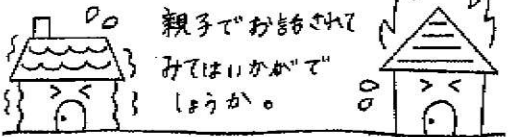 親子でお話されて
みてはいかがで
しょうか。